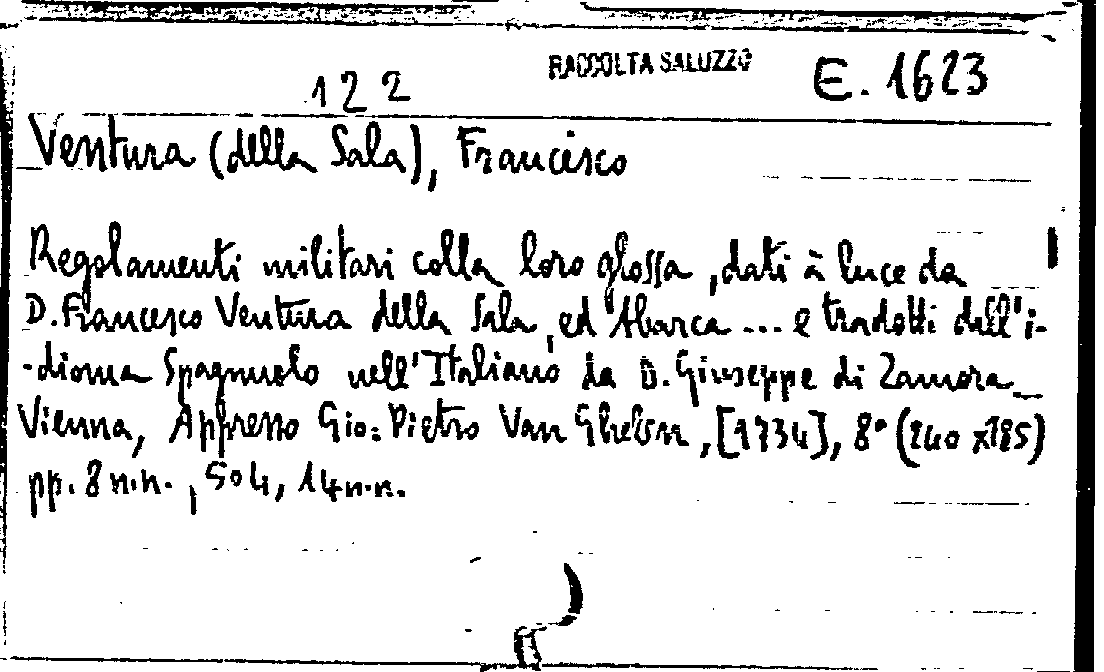 122 RACCOLTA SALUZZO E. 1623
Ventura (della Sala), Francesco
Regolamenti militari colla loro glossa, dati à luce da
D. Francesco Ventura della Sala, ed Abarca ... e tradotti dell'i-
-dioma Spagnuolo nell'Italiano da D. Giuseppe di Zamora_
Vienna, Appresso Gio: Pietro Van Ghelen, [1734], 8° (240 x185)
pp. 8 n.n., 504, 14 n.n.